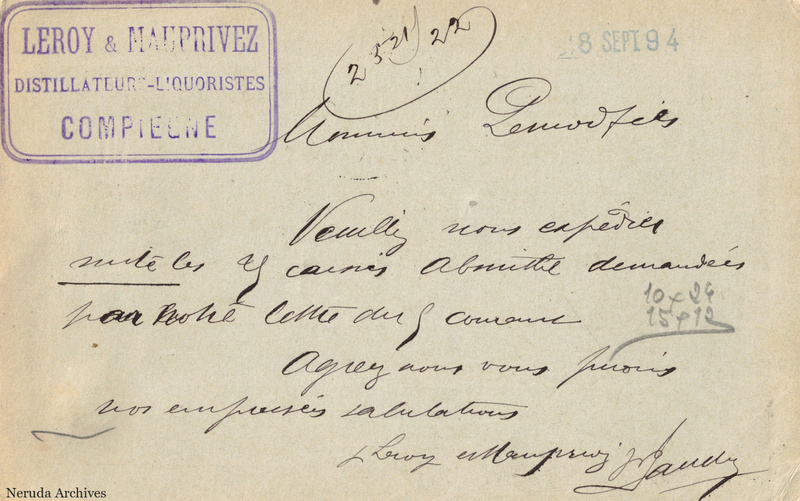 LEROY & MAUPRIVEZ
DISTILLATEURS-LIQUORISTES
COMPIEGNE
8 SEPT 94
2321/22
Pernod fils
Veuillez nous expédier
suite les 25 caisses Absinthe demandées
par notre lettre du 5 courant
10 x 24
15 x 12
Agreez nous vous prions
nos empressées salutations
Leroy et Mauprivez
Neruda Archives